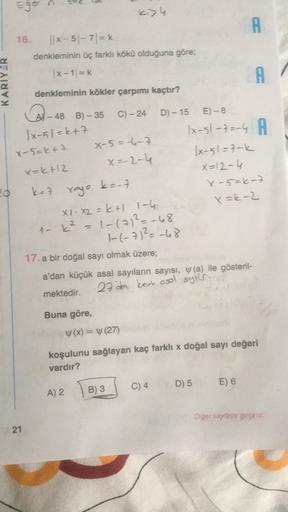 k>4
KARİYER
A
16. ||x – 5| – 7| = k
denkleminin üç farklı kökü olduğuna göre;
|x – 1| = k
A
denkleminin kökler çarpımı kaçtır?
A) – 48 B) – 35 C) – 24 D) – 15 E) – 8
|x-5|=k+7
|x-5|-7=-k
A
x-5=k+7
x-5=-k-7
|x-5|=7-k
x=k+12
x=-2-k
x=12-k
x-5=k-7
k=7 veya k=-7
x=k-2
x1·x2 = k+1 1-k
1- k² = 1-(7)²=-48
1-(-7)²=-48
17. a bir doğal sayı olmak üzere;
a'dan küçük asal sayıların sayısı, ψ(a) ile gösteril-
mektedir.
Buna göre,
ψ(x) = ψ(27)
koşulunu sağlayan kaç farklı x doğal sayı değeri
vardır?
A) 2 B) 3 C) 4 D) 5 E) 6
Diğer sayfaya geçiniz.
21